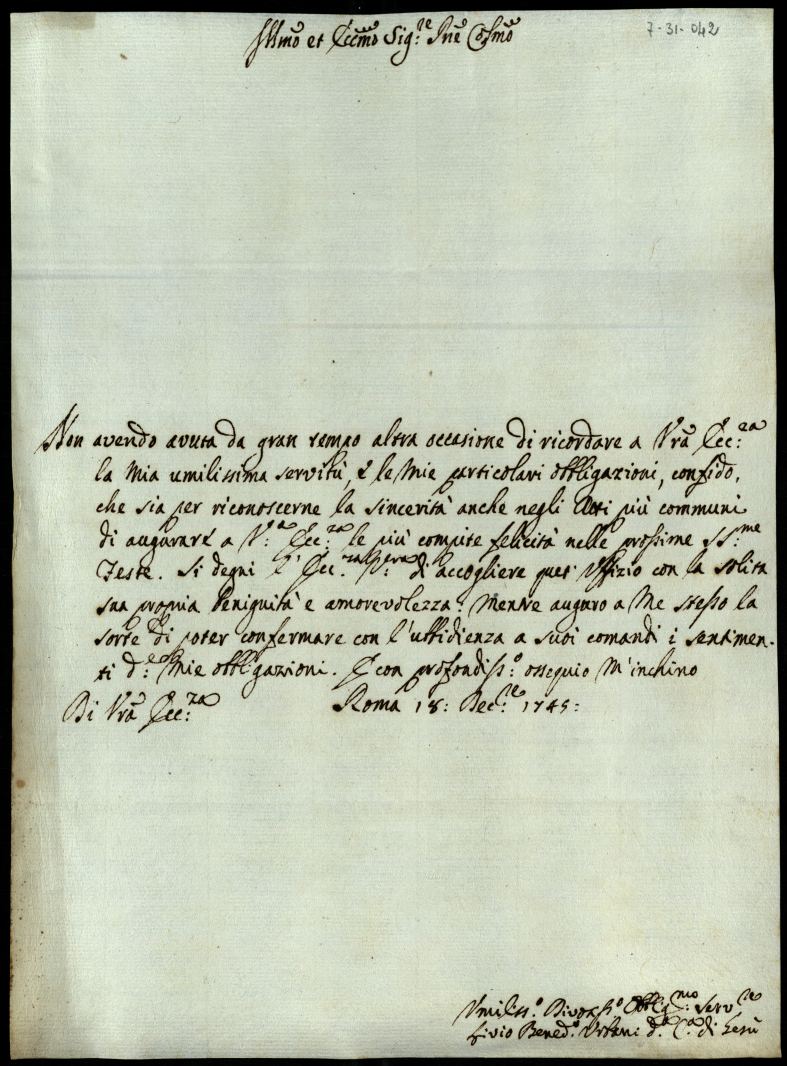 7-31-042
Illmo et Eccmo Sig:re Pne Cosmo
Non avendo avuta da gran tempo altra occasione di ricordare a Vra Ecc:za
la mia umilissima servitù, e le mie particolari obbligazioni, confido,
che sia per riconoscerne la sincerità anche negli Atti più communi
di augurare a V:a Ecc:za le più compite felicità nelle prossime SS:me
Feste. Si degni l'Ecc:za V:ra di accogliere quest'Uffizio con la solita
sua propria benignità e amorevolezza: mentre auguro a Me stesso la
sorte di poter confermare con l'ubbidienza a suoi comandi i sentimen-
ti d:e Mie obbligazioni. E con profondiss:o ossequio M'inchino
Di Vra Ecc:za Roma 18: Dec:re 1745:
Umiliss:o Divotiss:o Obblig:mo Serv:re
Livio Bened:o Urbani d:a C:a di Gesù